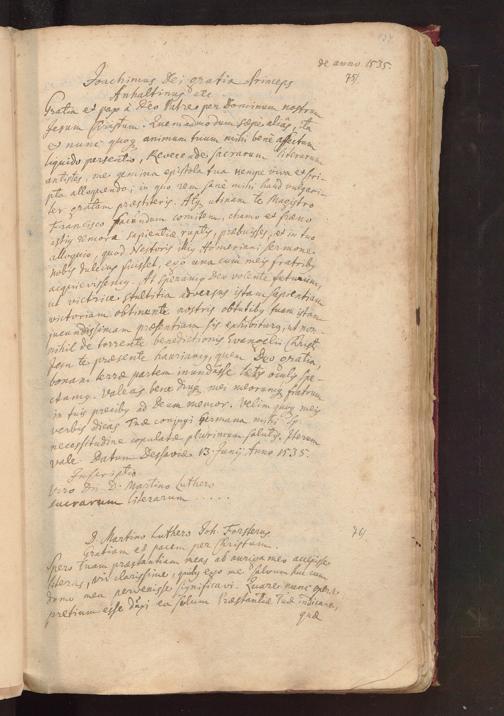 de anno 1535
75.
Joachimus Dei gratia Princeps
Anhaltinus etc
Gratia et pax à Deo Patre per Dominum nostrum
Jesum Christum. Quemadmodum sepe aliàs, ita
et nunc quoq animum tuum mihi benè affectum
liquido persentio, Reverende sacrarum literarum
antistes, me gemina epistola tua nempe viva et scri-
pta alloquendo; in quo rem sanè mihi haud vulgari-
ter gratam praestiteris. Atq utinam te Magistro
Francisco facundum comitem, chamo et freno
istis remora sapientiae ruptis, prebuisses, et in tuo
alloquio, quod Nestoris illiq Homeriani sermone
nobis dulcius fuisset, ego una cum meis fratribq
acquievissemq. At speramq Deo volente futurum,
ut victrice stultitia adversus istam sapientiam
victoriam obtinente nostris obtutibq tuam istam
jucundissimam praesentiam sis exhibiturq, ut non-
nihil de torrente benedictionis Evangelii Christi
fom te presente hauriamq, quem Deo gratia,
bonam terrae partem inundasse laetis oculis spe-
ctamq. Valeas bene diuq mei meorumq fratrum
in tuis precibq ad Deum memor. Velim quoq meis
verbis dicas Tuae conjugi Germana mihi Sp.
necessitudine copulatae plurimum salutis. Iterum
vale. Datum Dessaviae 13. Junij Anno 1535.
Inscriptio
Viro Dn. D. Martino Luthero
sacrarum literarum . . . . .
D. Martino Luthero Joh. Forsterus
76.
gratiam et pacem per Christum.
Spero tuam praestantiam meas ab aurivago meo accepisse
literas, vir clarissime, quibq ego me salvum huc cum
domo mea pervenisse significavi. Quare nunc operae
pretium esse duxi ea solum Praestantiae Tuae indicare,
quae